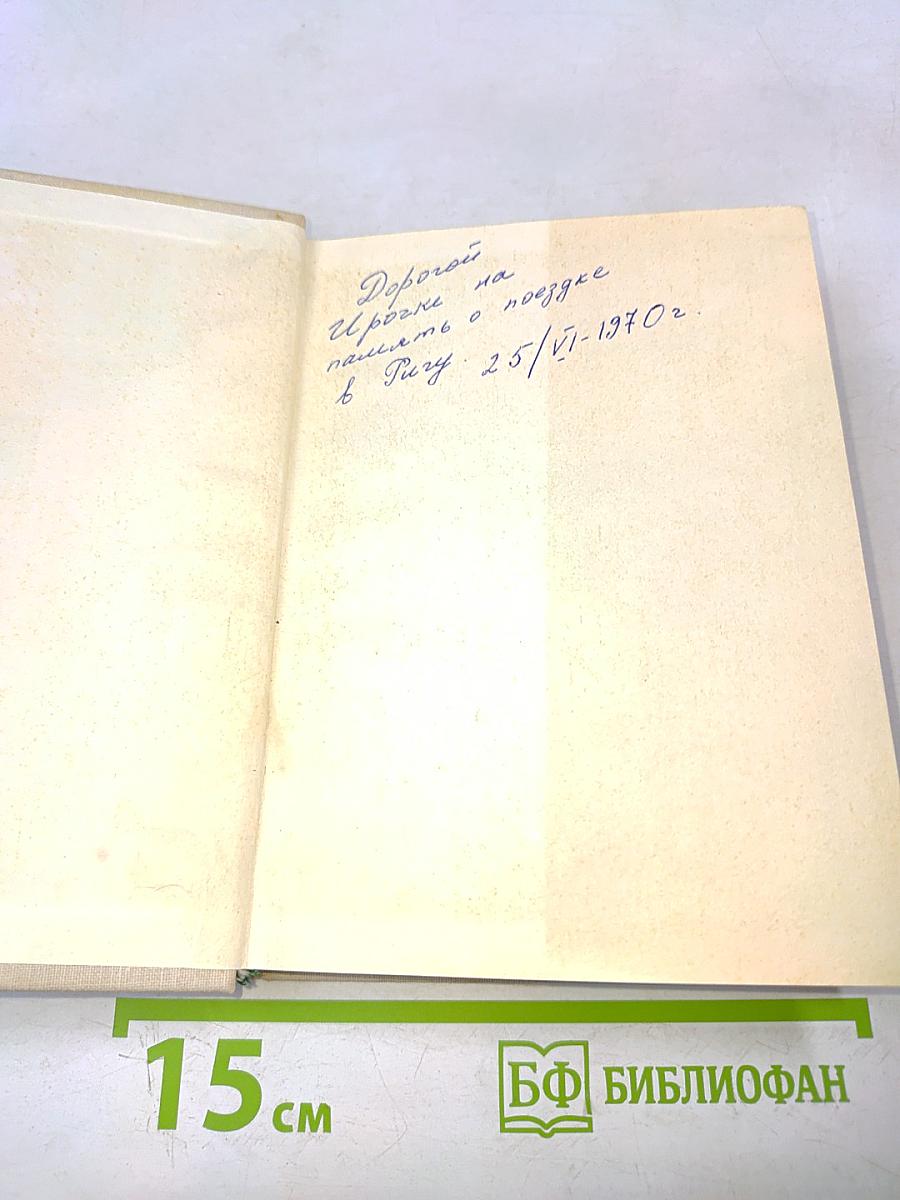 Дорогой
Ирочке на
память о поездке
в Ригу. 25/VI-1970г.
15 см
БФ БИБЛИОФАН